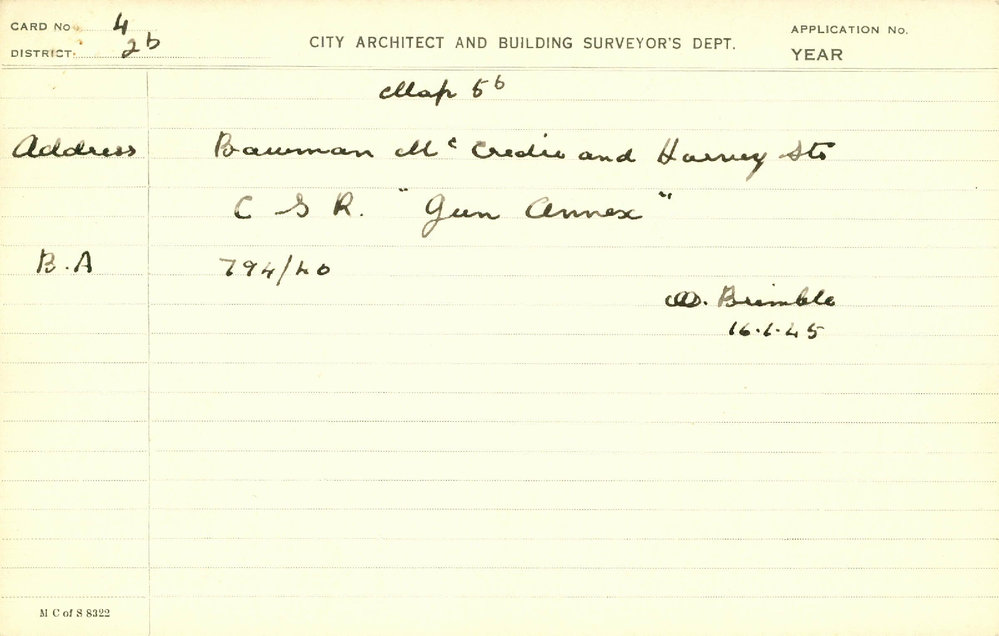 CARD No 4
DISTRICT: 2b
CITY ARCHITECT AND BUILDING SURVEYOR'S DEPT.
APPLICATION No.
YEAR
Map 5b
Address Bowman Mc Credie and Harvey Sts
C S R. "Gun Annex"
B.A 794/40
D. Brimble
16.1.45
M C of S 8322